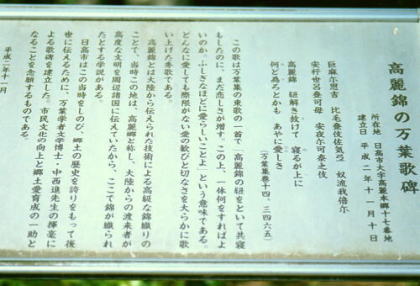 高麗錦の万葉歌碑
所在地 日高市大字高麗本郷十七番地
建立日 平成二年十一月十日
巨麻尓思吉 比毛登伎佐気弖 奴流我倍尓
安杼世呂登可母 安夜尓可奈之伎
高麗錦 紐解き放けて 寝るが上に
何ど為ろとかも あやに愛しき
(万葉集巻十四、三四六五)
この歌は万葉集の東歌の一首で「高麗錦の紐をといて共寝
もしたのに、まだ悲しさが増す、この上、一体何をすればよ
いのか、ふしぎなほどに愛らしいことよ」という意味である。
どんなに愛しても際限がない恋の歓びと切なさを大らかに歌
い上げた秀歌である。
高麗錦とは大陸から伝えられた技術による高級な錦織りの
ことで、当時この地は、高麗郷と称し、大陸からの渡来者が
高度な文明を周辺諸国に伝えていたから、ここで錦が織られ
たとする学説がある。
日高市はこの当時をしのび、郷土の歴史を誇りをもって後
世に伝えるために、万葉学者文学博士・中西進先生の揮毫に
よる歌碑を建立した。市民文化の向上と郷土愛育成の一助と
なることを念願するものである。
平成二年十一月